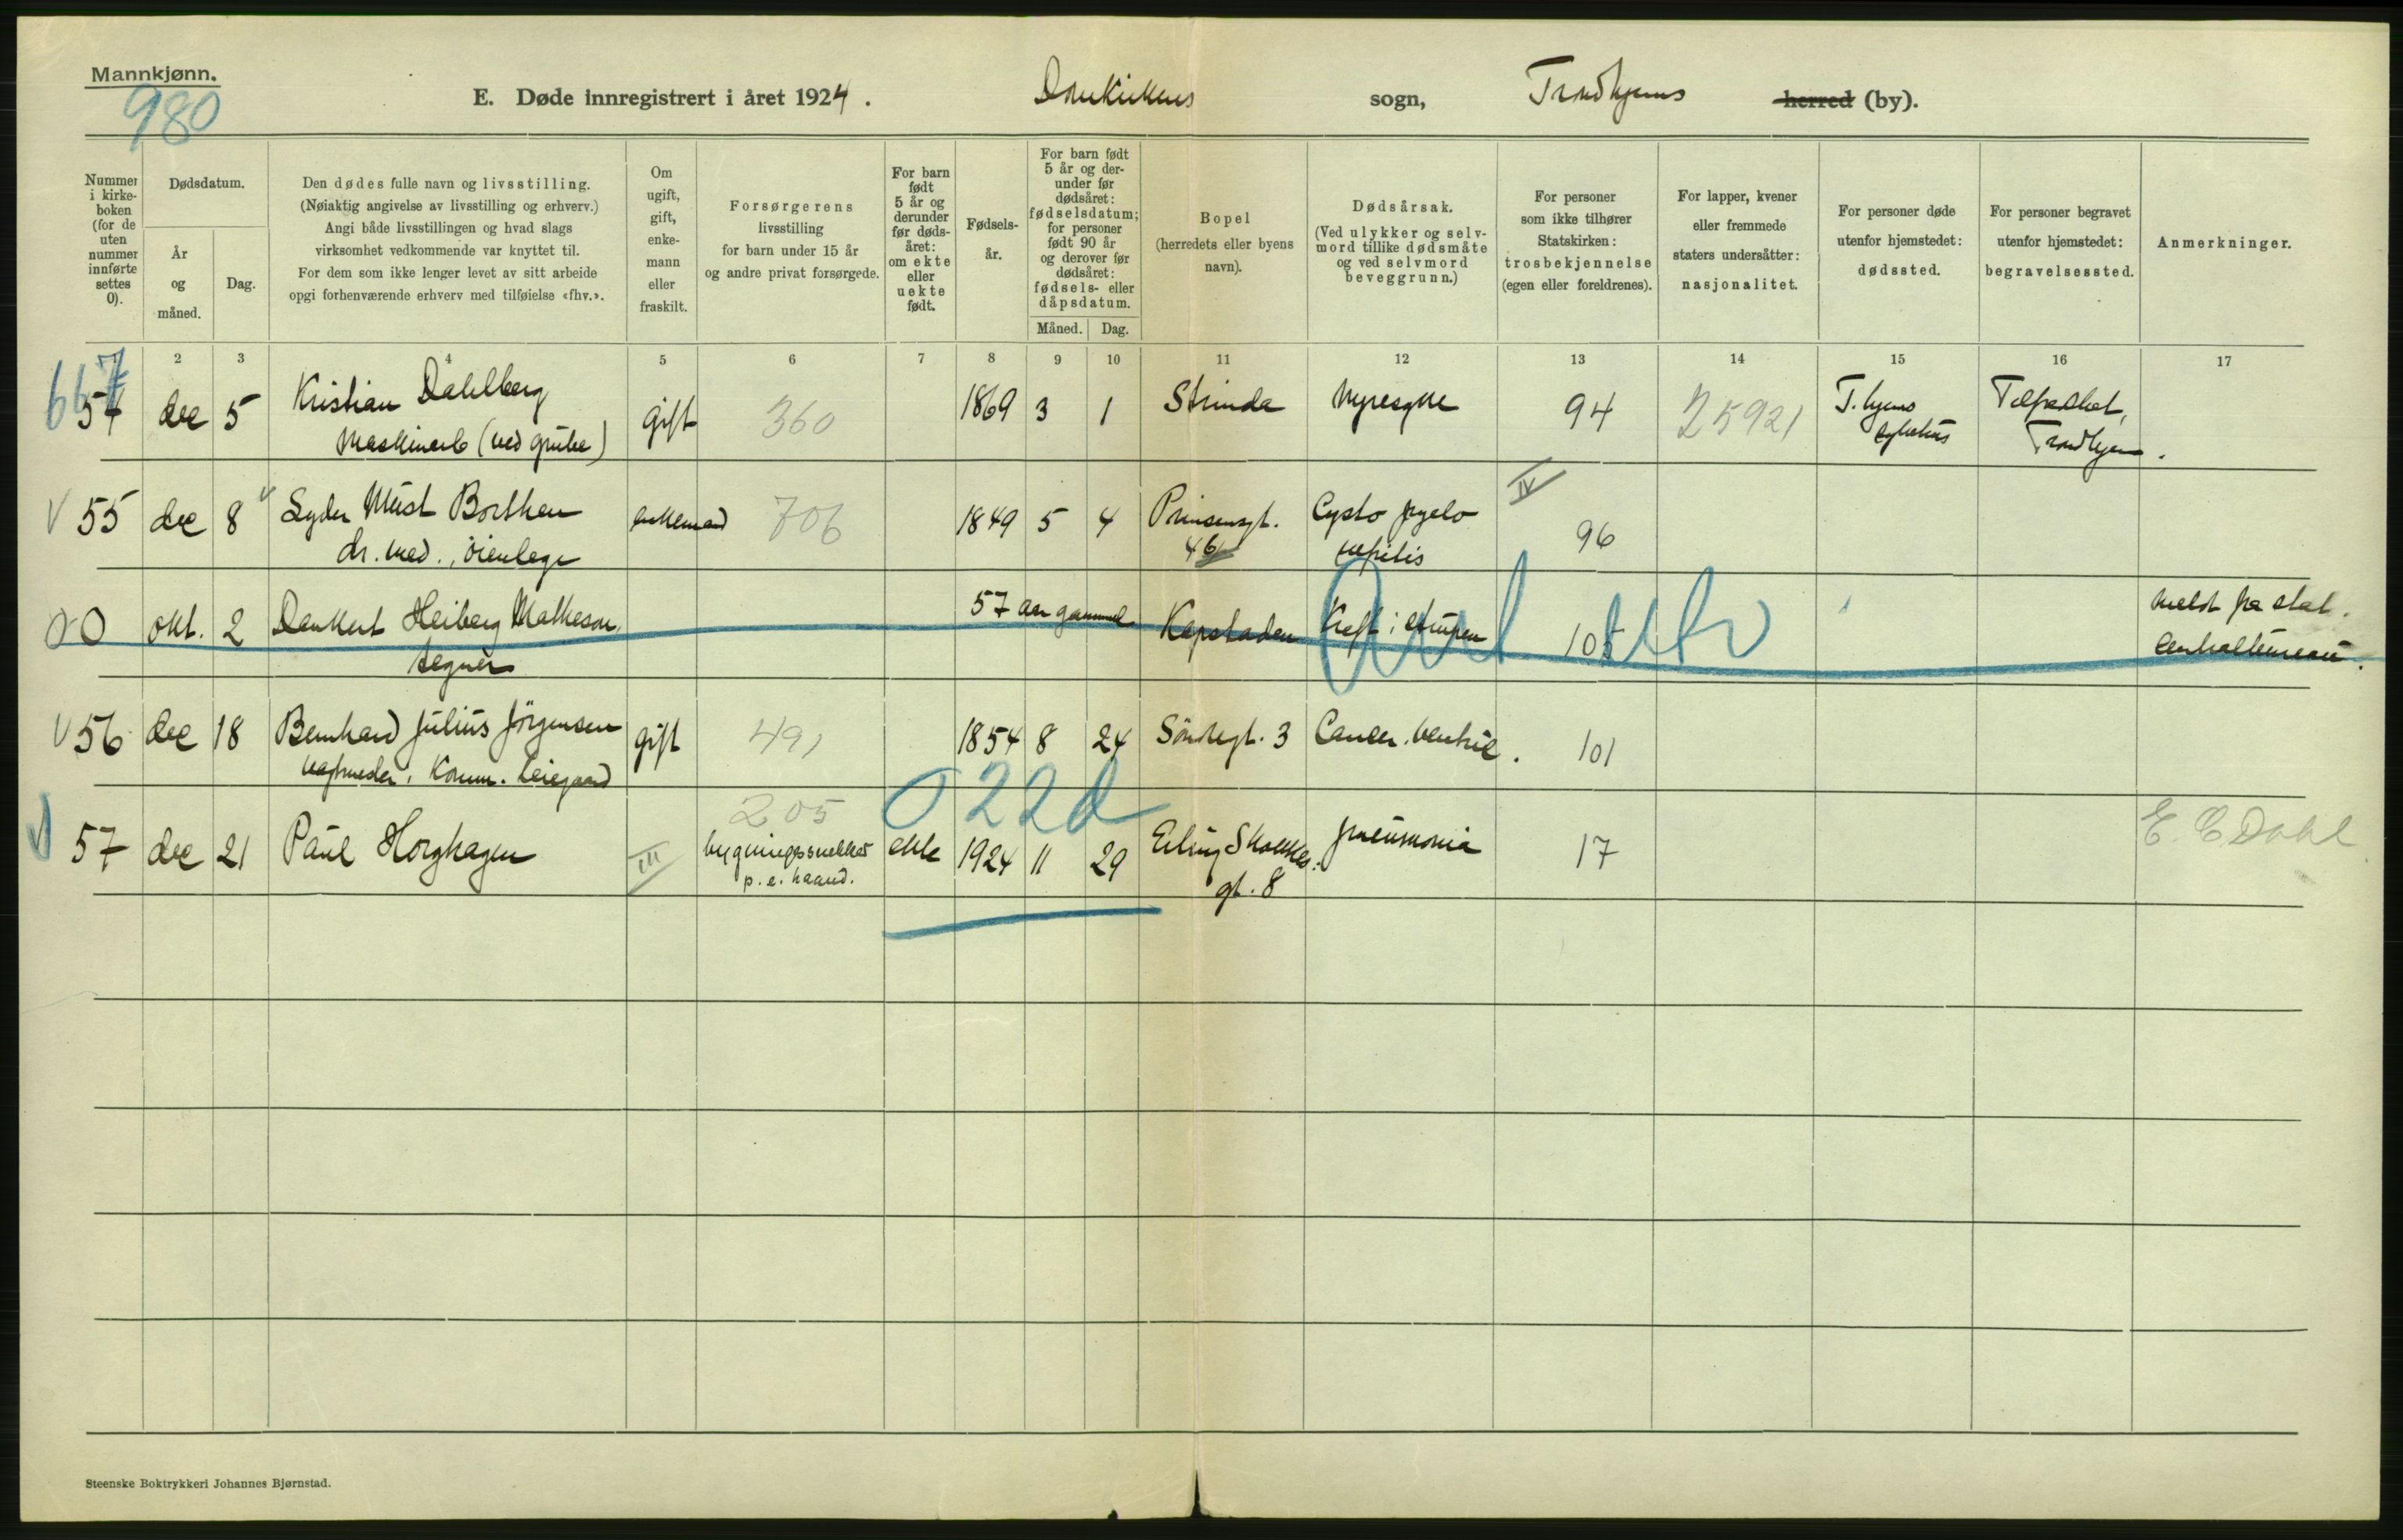 Mannkjønn.
980
E. Døde innregistrert i året 1924. Domkirkens sogn, Trondhjems herred (by).
Nummer i kirkeboken (for de uten nummer innførte settes 0).
Dødsdatum.
År og måned.
Dag.
Den dødes fulle navn og livsstilling.
(Nøiaktig angivelse av livsstilling og erhverv.)
Angi både livsstillingen og hvad slags
virksomhet vedkommende var knyttet til.
For dem som ikke lenger levet av sitt arbeide
opgi forhenværende erhverv med tilføielse «fhv.».
Om ugift, gift, enkemann eller fraskilt.
Forsørgerens
livsstilling
for barn under 15 år
og andre privat forsørgede.
For barn født 5 år og derunder før dødsåret: om ekte eller uekte født.
Fødselsår.
For barn født 5 år og derunder før dødsåret: fødselsdatum; for personer født 90 år og derover før dødsåret: fødsels- eller dåpsdatum.
Måned. Dag.
Bopel
(herredets eller byens
navn).
Dødsårsak.
(Ved ulykker og selvmord tillike dødsmåte og ved selvmord beveggrunn.)
For personer
som ikke tilhører
Statskirken:
trosbekjennelse
(egen eller foreldrenes).
For lapper, kvener
eller fremmede
staters undersåtter:
nasjonalitet.
For personer døde
utenfor hjemstedet:
dødssted.
For personer begravet
utenfor hjemstedet:
begravelsessted.
Anmerkninger.
1 2 3 4 5 6 7 8 9 10 11 12 13 14 15 16 17
667
54 dec 5 Kristian Dahlberg gift 360 1869 3 1 Strinda nyresyke 94 25921 T.hjems sykehus
Maskinarb (ved grube)
Tilfredshet, Trondhjem.
V 55 dec 8 Lyder Must Borthen enkemand 706 1849 5 4 Prinsensgt. 46 Cysto pyelo nefritis IV 96
dr. med., øienlæge
0 okt. 2 Dankert Heiberg Matheson 57 aar gammel Kapstaden Kreft i strupen 105 meldt fra stat. centralbureau.
tegner
V 56 dec 18 Bernhard Julius Jörgensen gift 491 1854 8 24 Söndregt. 3 Cancer. ventric. 101
vagtmester, Komm. Leiegaard
0 22d
205
V 57 dec 21 Paul Horghagen III bygningssnekker ekte 1924 11 29 Erling Skakkes gt. 8 pneumonia 17 E. C. Dahl
p. e. haand.
Steenske Boktrykkeri Johannes Bjørnstad.